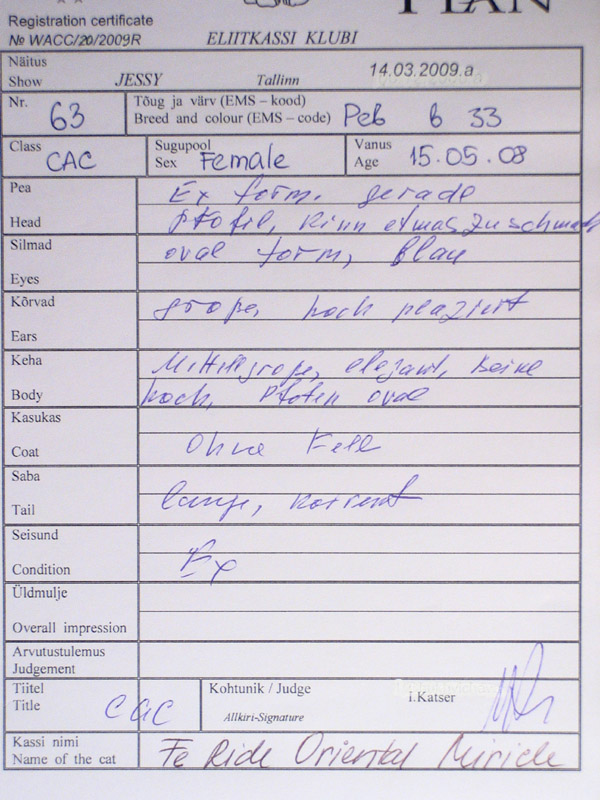 PLAN
Registration certificate
№ WACC/20/2009R ELIITKASSI KLUBI
Näitus
Show JESSY Tallinn 14.03.2009.a
Nr. 63 Tõug ja värv (EMS – kood)
Breed and colour (EMS – code) Peb b 33
Class CAC Sugupool
Sex Female Vanus
Age 15.05.08
Pea Ex form, gerade
Head Profil, Kinn etwas zu schmal
Silmad oval form, blau
Eyes
Kõrvad große, hoch plaziert
Ears
Keha Mittelgroße, elegant, Beine
Body hoch, Pfoten oval
Kasukas
Coat Ohne Fell
Saba
Tail lange, korrekt
Seisund
Condition Ex
Üldmulje
Overall impression
Arvutustulemus
Judgement
Tiitel
Title CAC Kohtunik / Judge i.Katser
Allkiri-Signature
Kassi nimi
Name of the cat Fe Ride Oriental Miricle